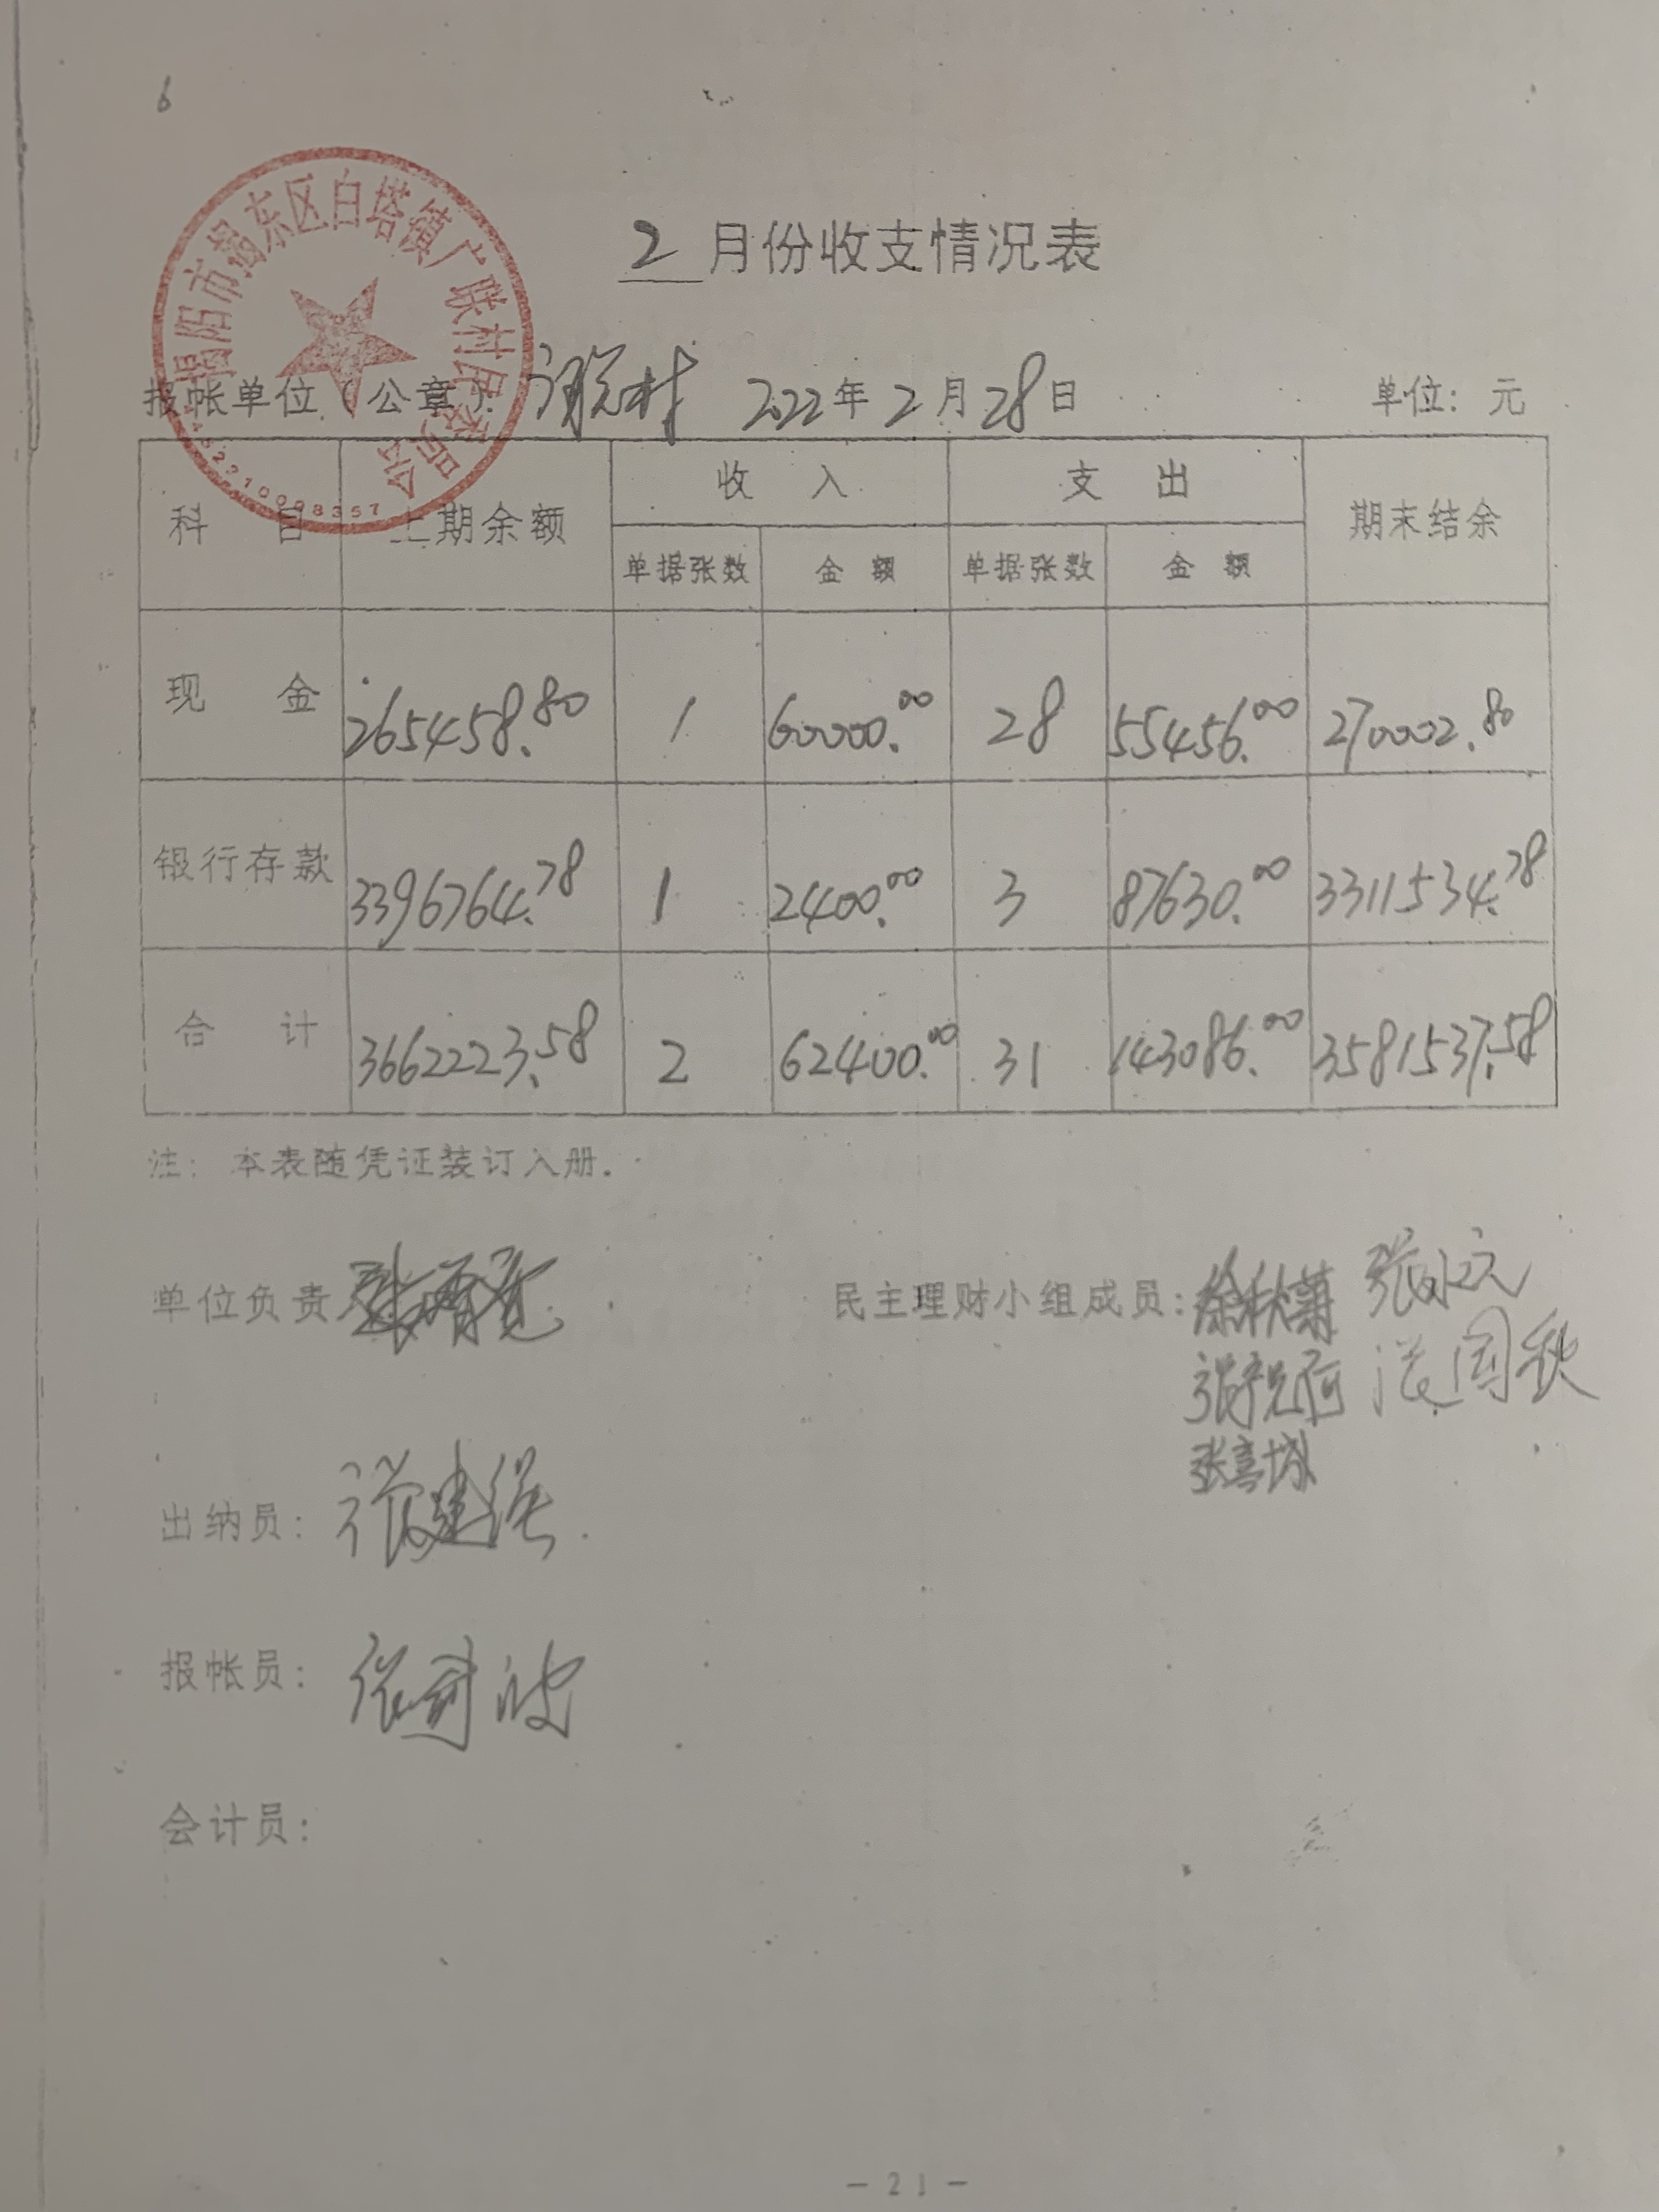 6
揭阳市揭东区白塔镇广联村民委员会
2 月份收支情况表
报帐单位（公章）：广联村 2022年2月28日 单位：元
科目 上期余额 收入 支出 期末结余
单据张数 金额 单据张数 金额
现金 265458.80 1 60000.00 28 55456.00 270002.80
银行存款 3396764.78 1 2400.00 3 87630.00 3311534.78
合计 3662223.58 2 62400.00 31 143086.00 3581537.58
注：本表随凭证装订入册.
单位负责 民主理财小组成员：
张喜城
出纳员：张建强
报帐员：
会计员：
－21－